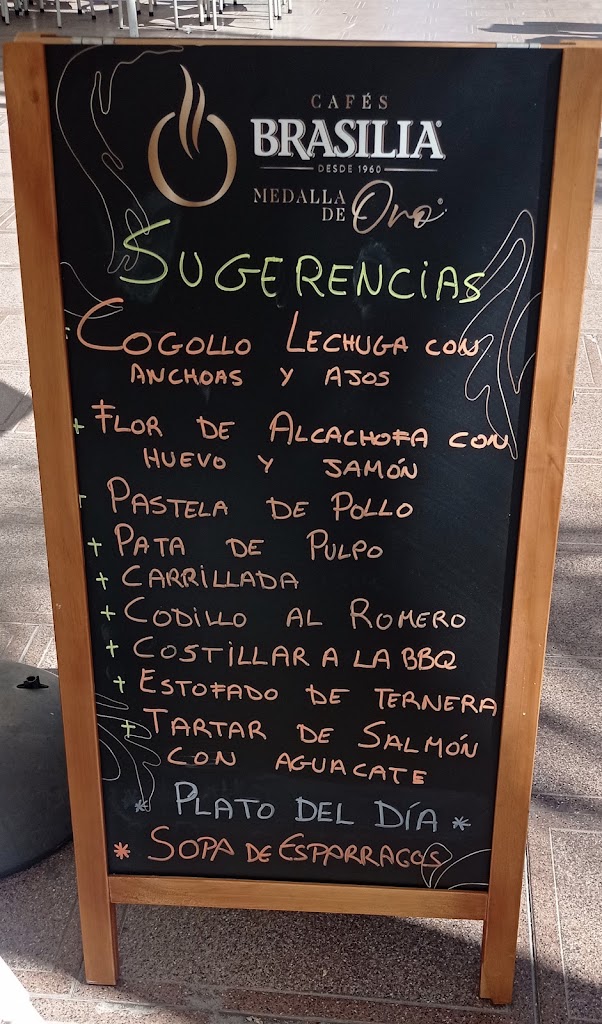 CAFÉS
BRASILIA
DESDE 1960
MEDALLA
DE Oro
SUGERENCIAS
COGOLLO LECHUGA CON
ANCHOAS Y AJOS
+ FLOR DE ALCACHOFA CON
HUEVO Y JAMÓN
+ PASTELA DE POLLO
+ PATA DE PULPO
+ CARRILLADA
+ CODILLO AL ROMERO
+ COSTILLAR A LA BBQ
+ ESTOFADO DE TERNERA
+ TARTAR DE SALMÓN
CON AGUACATE
* PLATO DEL DÍA *
* SOPA DE ESPARRAGOS